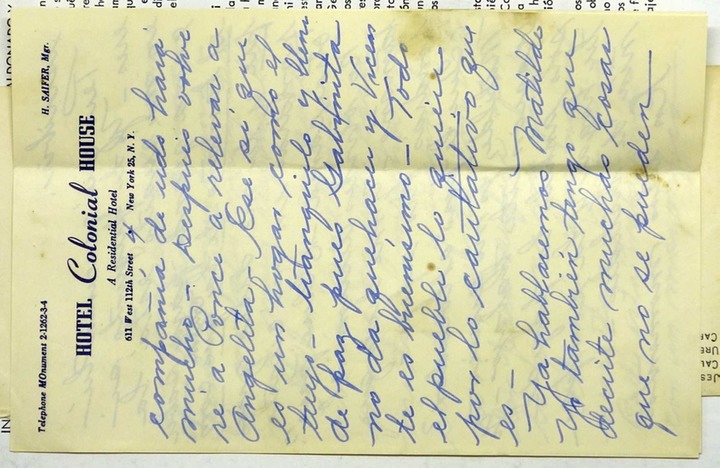 Telephone MOnument 2-1262-3-4
H. SAIFER, Mgr.
HOTEL Colonial HOUSE
A Residential Hotel
611 West 112th Street
New York 25, N. Y.
compañía de uds hará
mucho - Después volve
ré a Ponce a relevar a
Angelita - Ese sí que
es un hogar como el
tuyo - tranquilo y lleno
de paz pues Gabrielita
no da quehacer y Vicen
te es buenísimo - Todo
el pueblo lo quiere
por lo caritativo que
es -
Ya hablaremos Matilde
Yo también tengo que
decirte muchas cosas
que no se pueden -